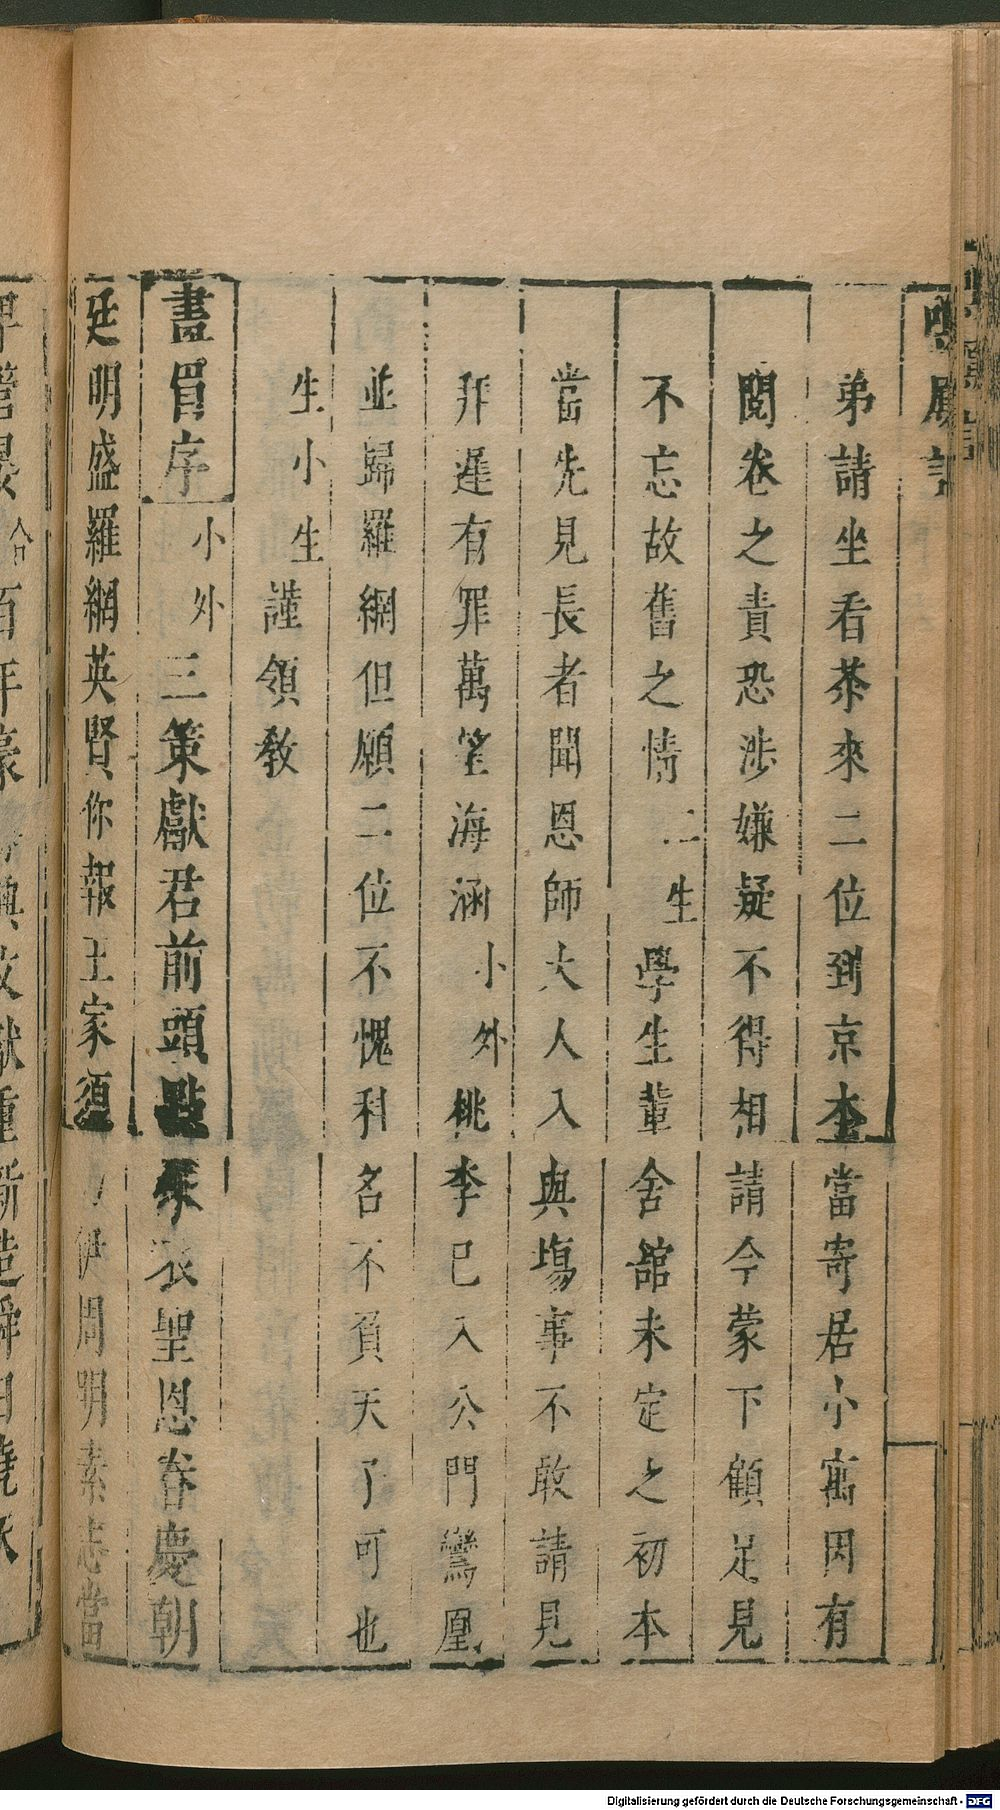 弟請坐看茶來二位到京本當寄居小寓因有
閱卷之責恐涉嫌疑不得相請今蒙下顧足見
不忘故舊之情二生學生輩舍舘未定之初本
當先見長者聞恩師大人入與塲事不敢請見
拜遲有罪萬望海涵小外桃李已入公門鸞凰
並歸羅網但願二位不愧科名不負天了可也
生小生謹領敎
畫眉序小外三策獻君前頭點朱衣聖恩眷慶朝
廷明盛羅網英賢你報王家須伊周明素志當
Digitalisierung gefördert durch die Deutsche Forschungsgemeinschaft - DFG